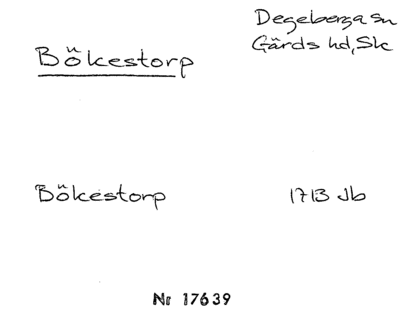 Bökestorp
Degeberga sn
Gärds hd, Sk
Bökestorp 1713 Jb
Nr 17639